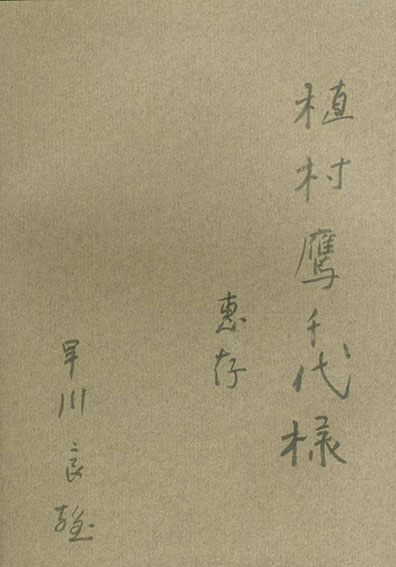 植村鷹千代様
惠存
早川良雄